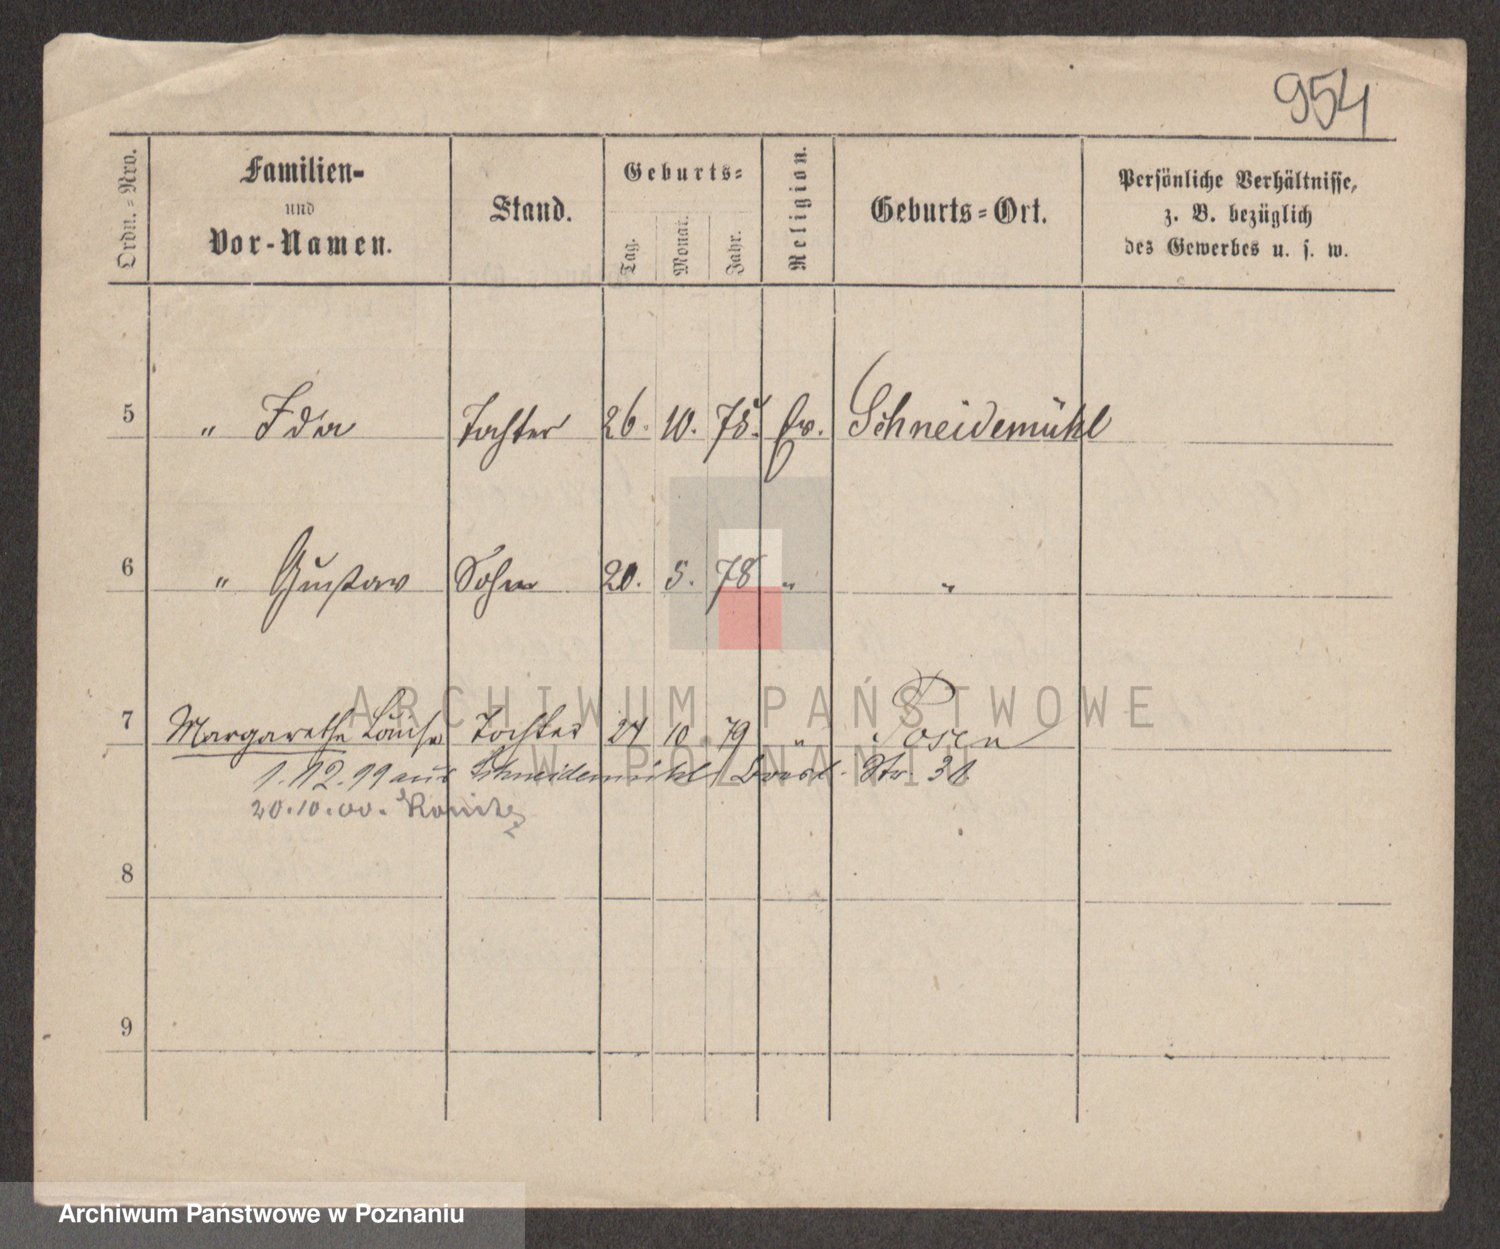 954
Ordn.-Nro.
Familien-
und
Vor-Namen.
Stand.
Geburts-
Tag.
Monat.
Jahr.
Religion.
Geburts-Ort.
Persönliche Verhältnisse,
z. B. bezüglich
des Gewerbes u. s. w.
5 " Ida Tochter 26. 10. 75. Ev. Schneidemühl
6 " Gustav Sohn 20. 5. 78 " "
7 Margarethe Louise Tochter 27 10 79 " Posen
1.12.99 aus Schneidemühl Str. 31
20.10.00. Konitz
8
9
ARCHIWUM PAŃSTWOWE
W POZNANIU
Archiwum Państwowe w Poznaniu